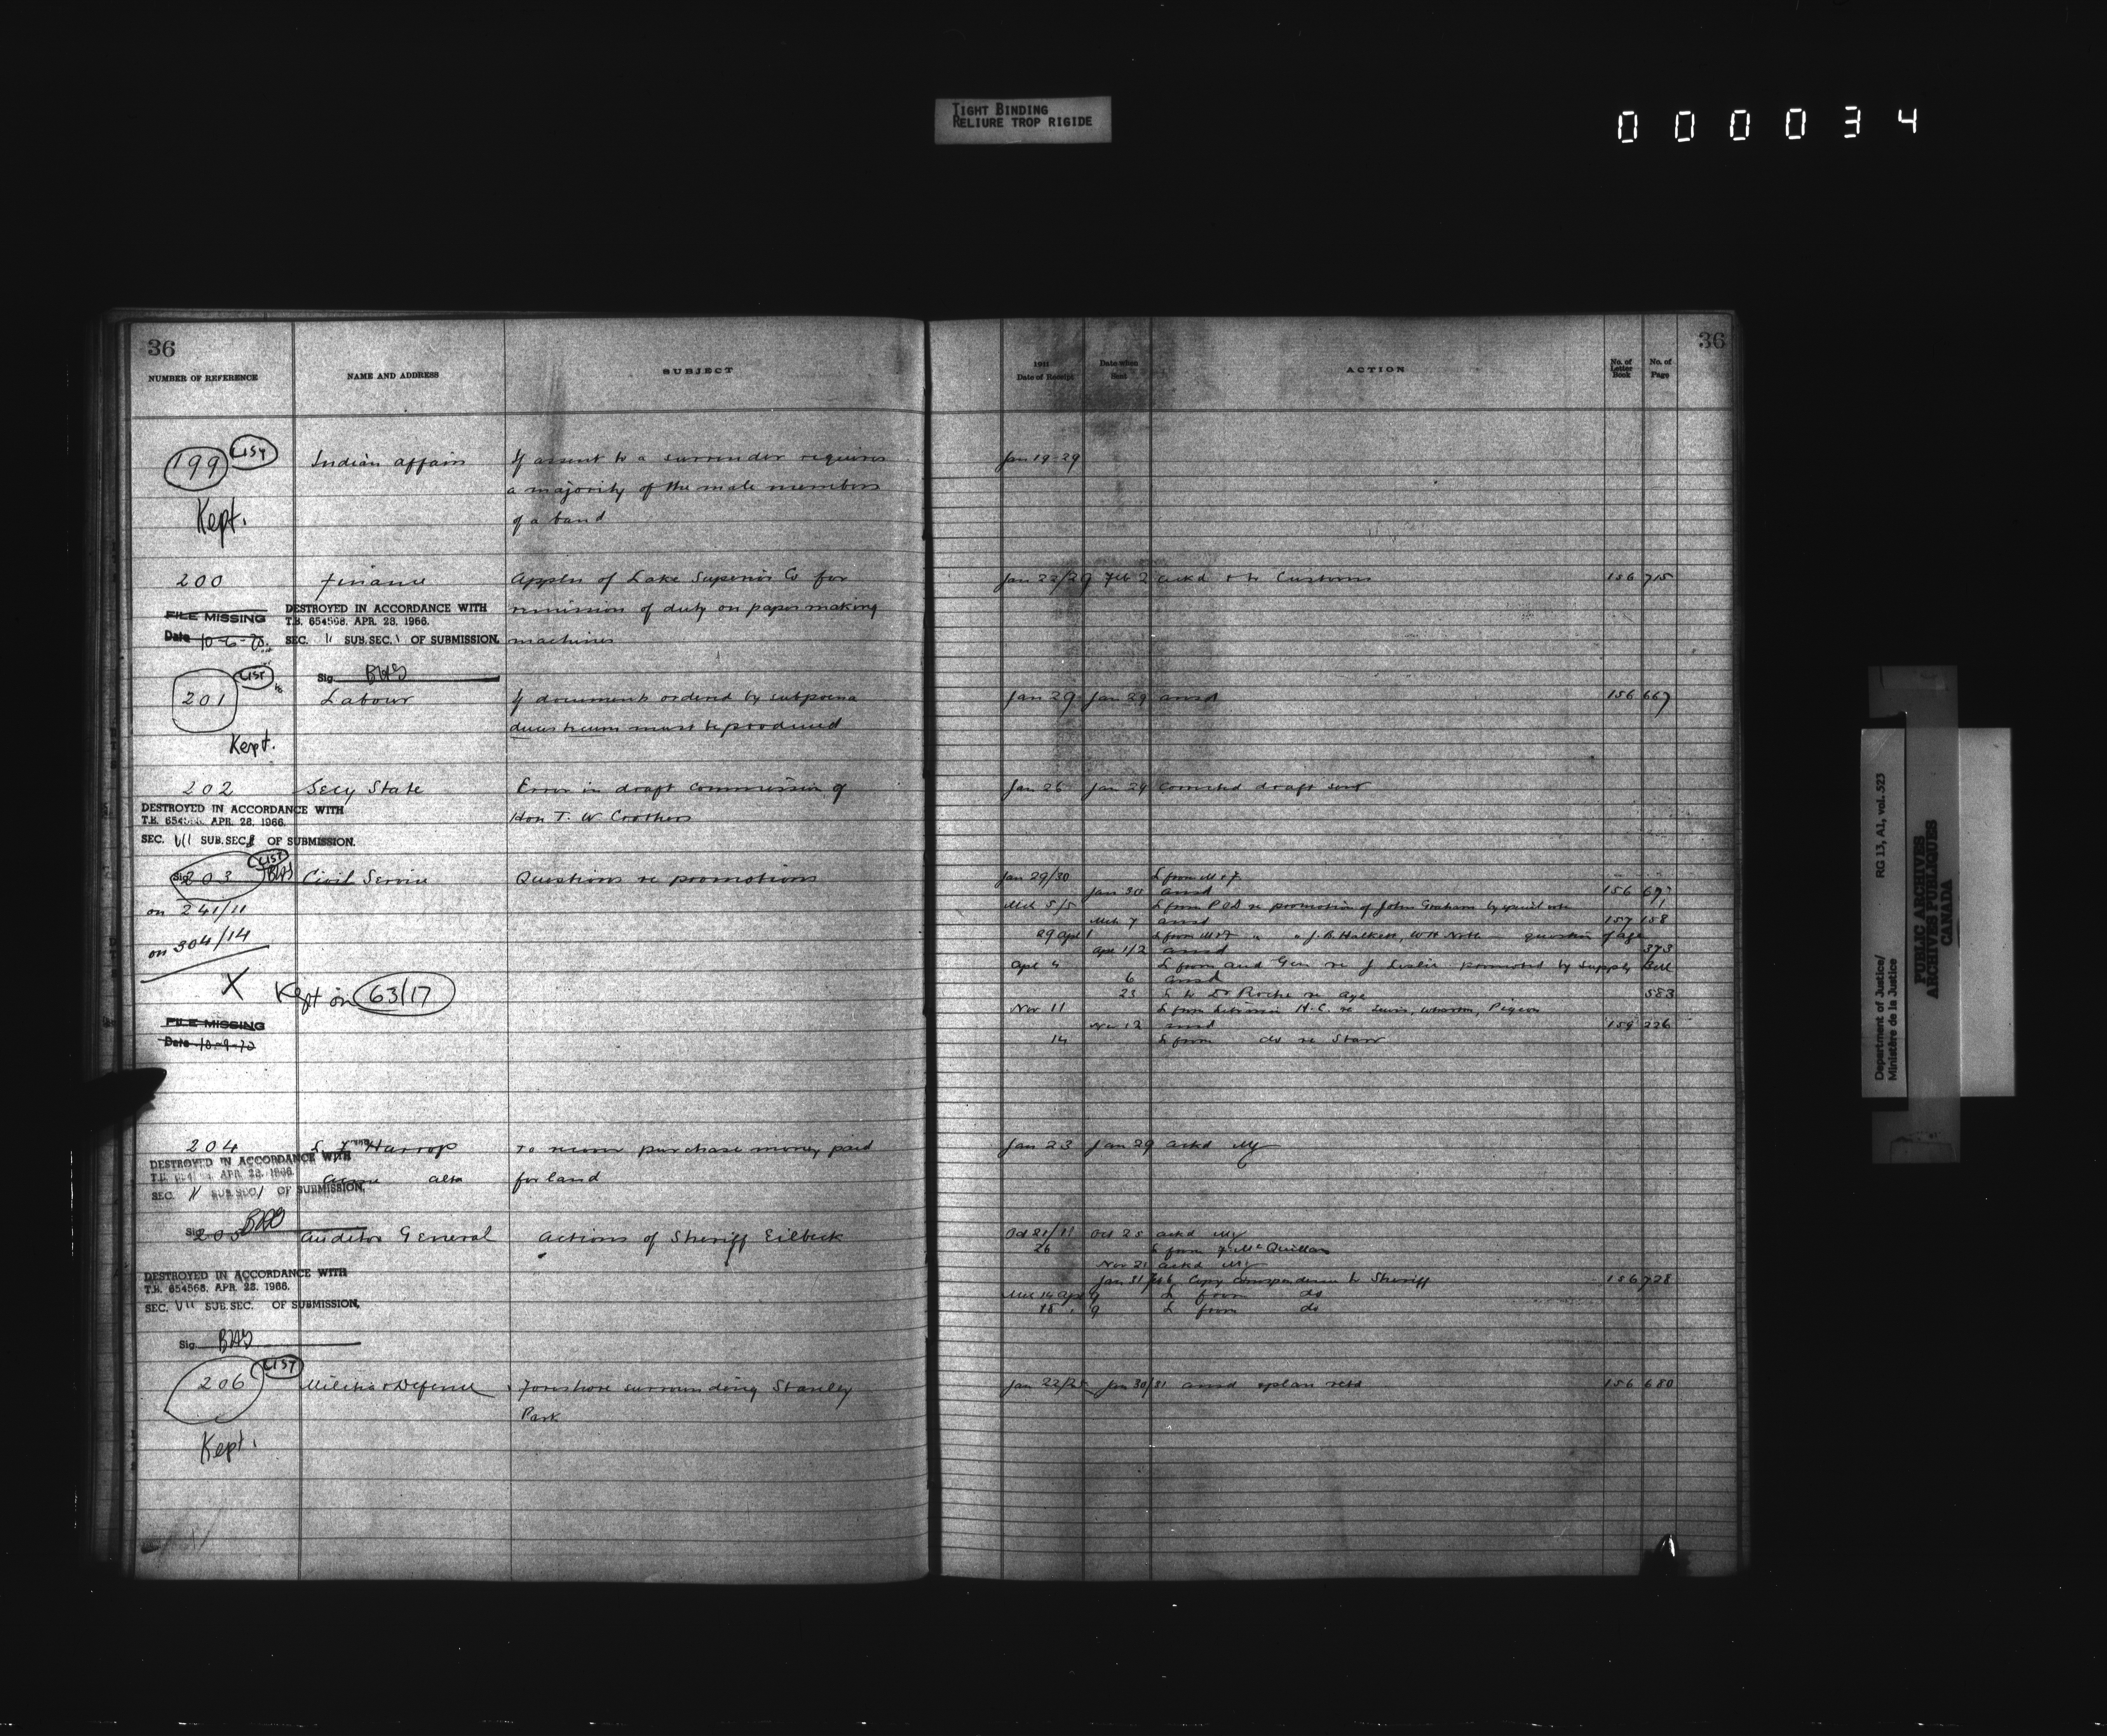 TIGHT BINDING
RELIURE TROP RIGIDE
000034
36
NUMBER OF REFERENCE NAME AND ADDRESS SUBJECT
199 LIST Indian affairs If assent to a surrender requires
a majority of the male members
Kept. of a band
200 Finance Appln of Lake Superior Co for
FILE MISSING DESTROYED IN ACCORDANCE WITH remission of duty on paper making
T.B. 654568. APR. 28. 1966.
Date SEC. 11 SUB.SEC. OF SUBMISSION. machines
Sig.
201 LIST Labour If documents ordered by subpoena
duces tecum must be produced
Kept.
202 Secy State Error in draft commission of
DESTROYED IN ACCORDANCE WITH
T.B. APR. 28. 1966. Hon T. W Crothers
SEC. VII SUB.SEC. OF SUBMISSION.
Sig. 203 LIST Civil Service Questions re promotions
on 241/11
on 304/14
X Kept on 63/17
FILE MISSING
Date
204 Harrop To recover purchase money paid
DESTROYED IN ACCORDANCE WITH
T.B. APR. 28. 1966. alta for land
SEC. SUB.SEC. OF SUBMISSION.
Sig.
205 Auditor General Actions of Sheriff Eilbeck
DESTROYED IN ACCORDANCE WITH
T.B. 654568. APR. 28. 1966.
SEC. VII SUB.SEC. OF SUBMISSION.
Sig.
206 LIST Militia & Defence Foreshore surrounding Stanley
Park
Kept.
36
1911 Date of Receipt Date when Sent ACTION No. of Letter Book No. of Page
Jan 19-29
Jan 22/29 Feb 2 ackd & to Customs 156 715
Jan 29 Jan 29 ansd 156 667
Jan 26 Jan 29 corrected draft sent
Jan 29/30 L from M &
Jan 30 ansd 156
Mch 5/5 L from P O D re promotion of John Graham by special vote
Mch 7 ansd 157 158
29 Apl 1 L from J. B. Halkett, question of age
Apl 1/2 ansd 373
Apl 4 L from Aud Gen re J Leslie promoted by Supply Bill
6 ansd
23 L to Dr Roche re age 583
Nov 11 L from Librarian H.C. re Lewis, Pigeon
Nov 12 ansd 159 226
14 L from do re Starr
Jan 23 Jan 29 ackd My
Oct 21/11 Oct 25 ackd My
26 L from McQuillan
Nov 21 ackd My
Jan 31 Copy correspondence to Sheriff 156 728
L from do
18 9 L from do
Jan 30/31 ansd & plan retd 156 680
Department of Justice/
Ministère de la Justice
RG 13, A1, vol. 523
PUBLIC ARCHIVES
ARCHIVES PUBLIQUES
CANADA